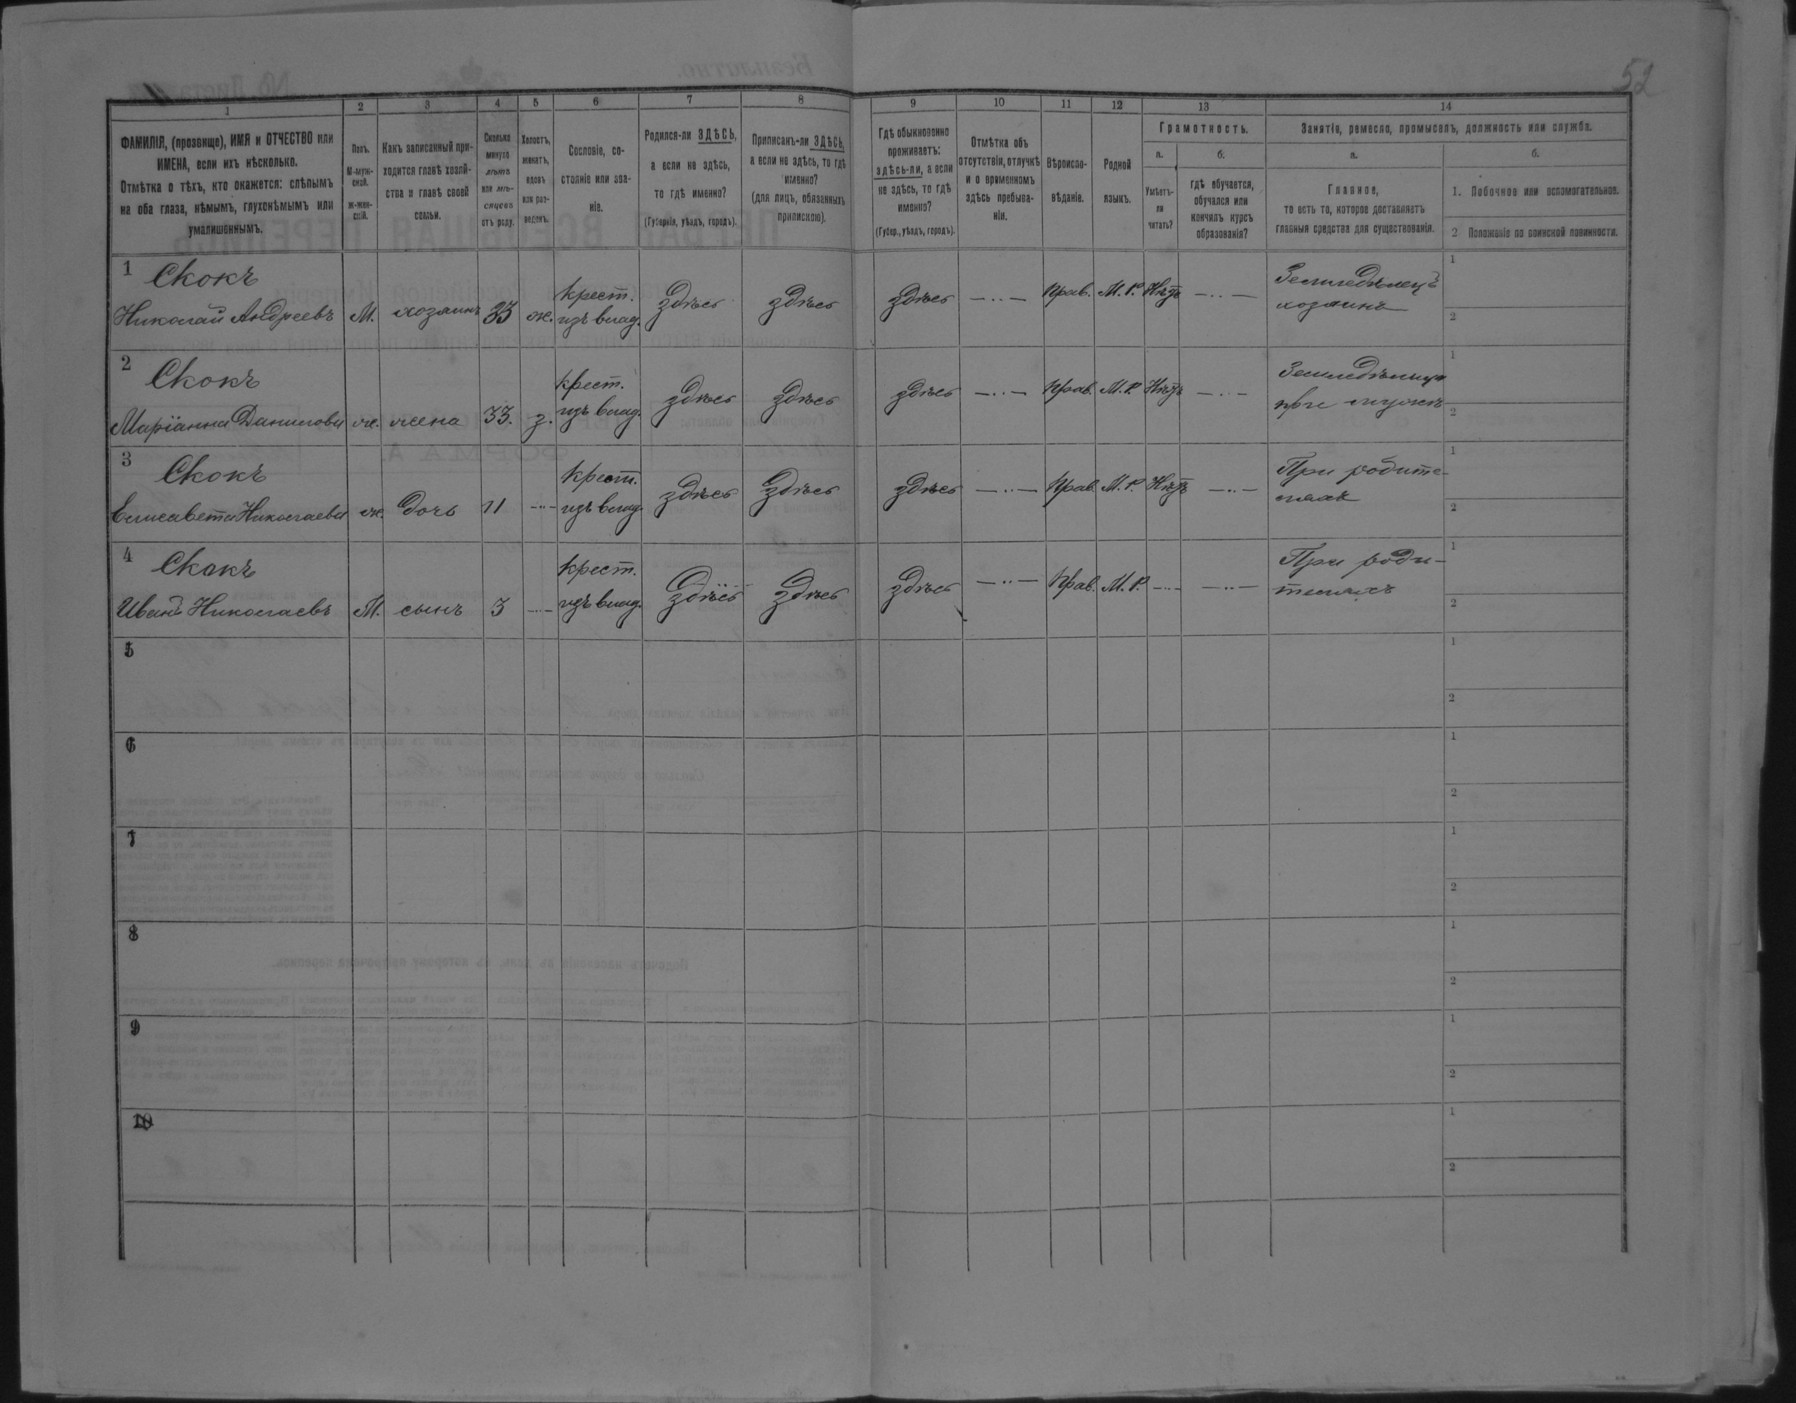 52
1
2
3
4
5
6
7
8
9
10
11
12
13
14
ФАМИЛІЯ, (прозвище), ИМЯ и ОТЧЕСТВО или
ИМЕНА, если ихъ нѣсколько.
Отмѣтка о тѣхъ, кто окажется: слѣпымъ
на оба глаза, нѣмымъ, глухонѣмымъ или
умалишоннымъ.
Полъ.
М-муж-
ской.
ж-жен-
скій.
Какъ записанный при-
ходится главѣ хозяй-
ства и главѣ своей
семьи.
Сколько
минуло
лѣтъ
или мѣ-
сяцевъ
отъ роду.
Холостъ,
женатъ,
вдовъ
или раз-
веденъ.
Сословіе, со-
стояніе или зва-
ніе.
Родился-ли ЗДѢСЬ,
а если не здѣсь,
то гдѣ именно?
(Губернія, уѣздъ, городъ).
Приписанъ-ли ЗДѢСЬ,
а если не здѣсь, то гдѣ
именно?
(для лицъ, обязанныхъ
припискою).
Гдѣ обыкновенно
проживаетъ:
здѣсь-ли, а если
не здѣсь, то гдѣ
именно?
(Губер., уѣздъ, городъ).
Отмѣтка объ
отсутствіи, отлучкѣ
и о временномъ
здѣсь пребыва-
ніи.
Вѣроиспо-
вѣданіе.
Родной
языкъ.
Грамотность.
а.
Умѣетъ-
ли
читать?
б.
гдѣ обучается,
обучался или
кончилъ курсъ
образованія?
Занятіе, ремесло, промыселъ, должность или служба.
а.
Главное,
то есть то, которое доставляетъ
главныя средства для существованія.
б.
1. Побочное или вспомогательное.
2 Положеніе по воинской повинности.
1 Скокъ
Николай Андреевъ М. хозяинъ 33 ж. крест. изъ влад. здѣсь здѣсь здѣсь —..— Прав. М.Р. Нѣтъ —..— Земледѣлецъ
хозяинъ
1
2
2 Скокъ
Маріанна Данилова ж. жена 33. з. крест. изъ влад. здѣсь здѣсь здѣсь —..— Прав. М.Р. Нѣтъ —..—
при мужѣ
1
2
3 Скокъ
Елисавета Николаева ж. дочь 11 —..— крест. изъ влад. здѣсь здѣсь здѣсь —..— Прав. М.Р. Нѣтъ —..— При родите-
ляхъ
1
2
4 Скокъ
Иванъ Николаевъ М. сынъ 3 —..— крест. изъ влад. здѣсь здѣсь здѣсь —..— Прав. М.Р. —..— —..— При роди-
теляхъ
1
2
5
1
2
6
1
2
7
1
2
8
1
2
9
1
2
10
1
2